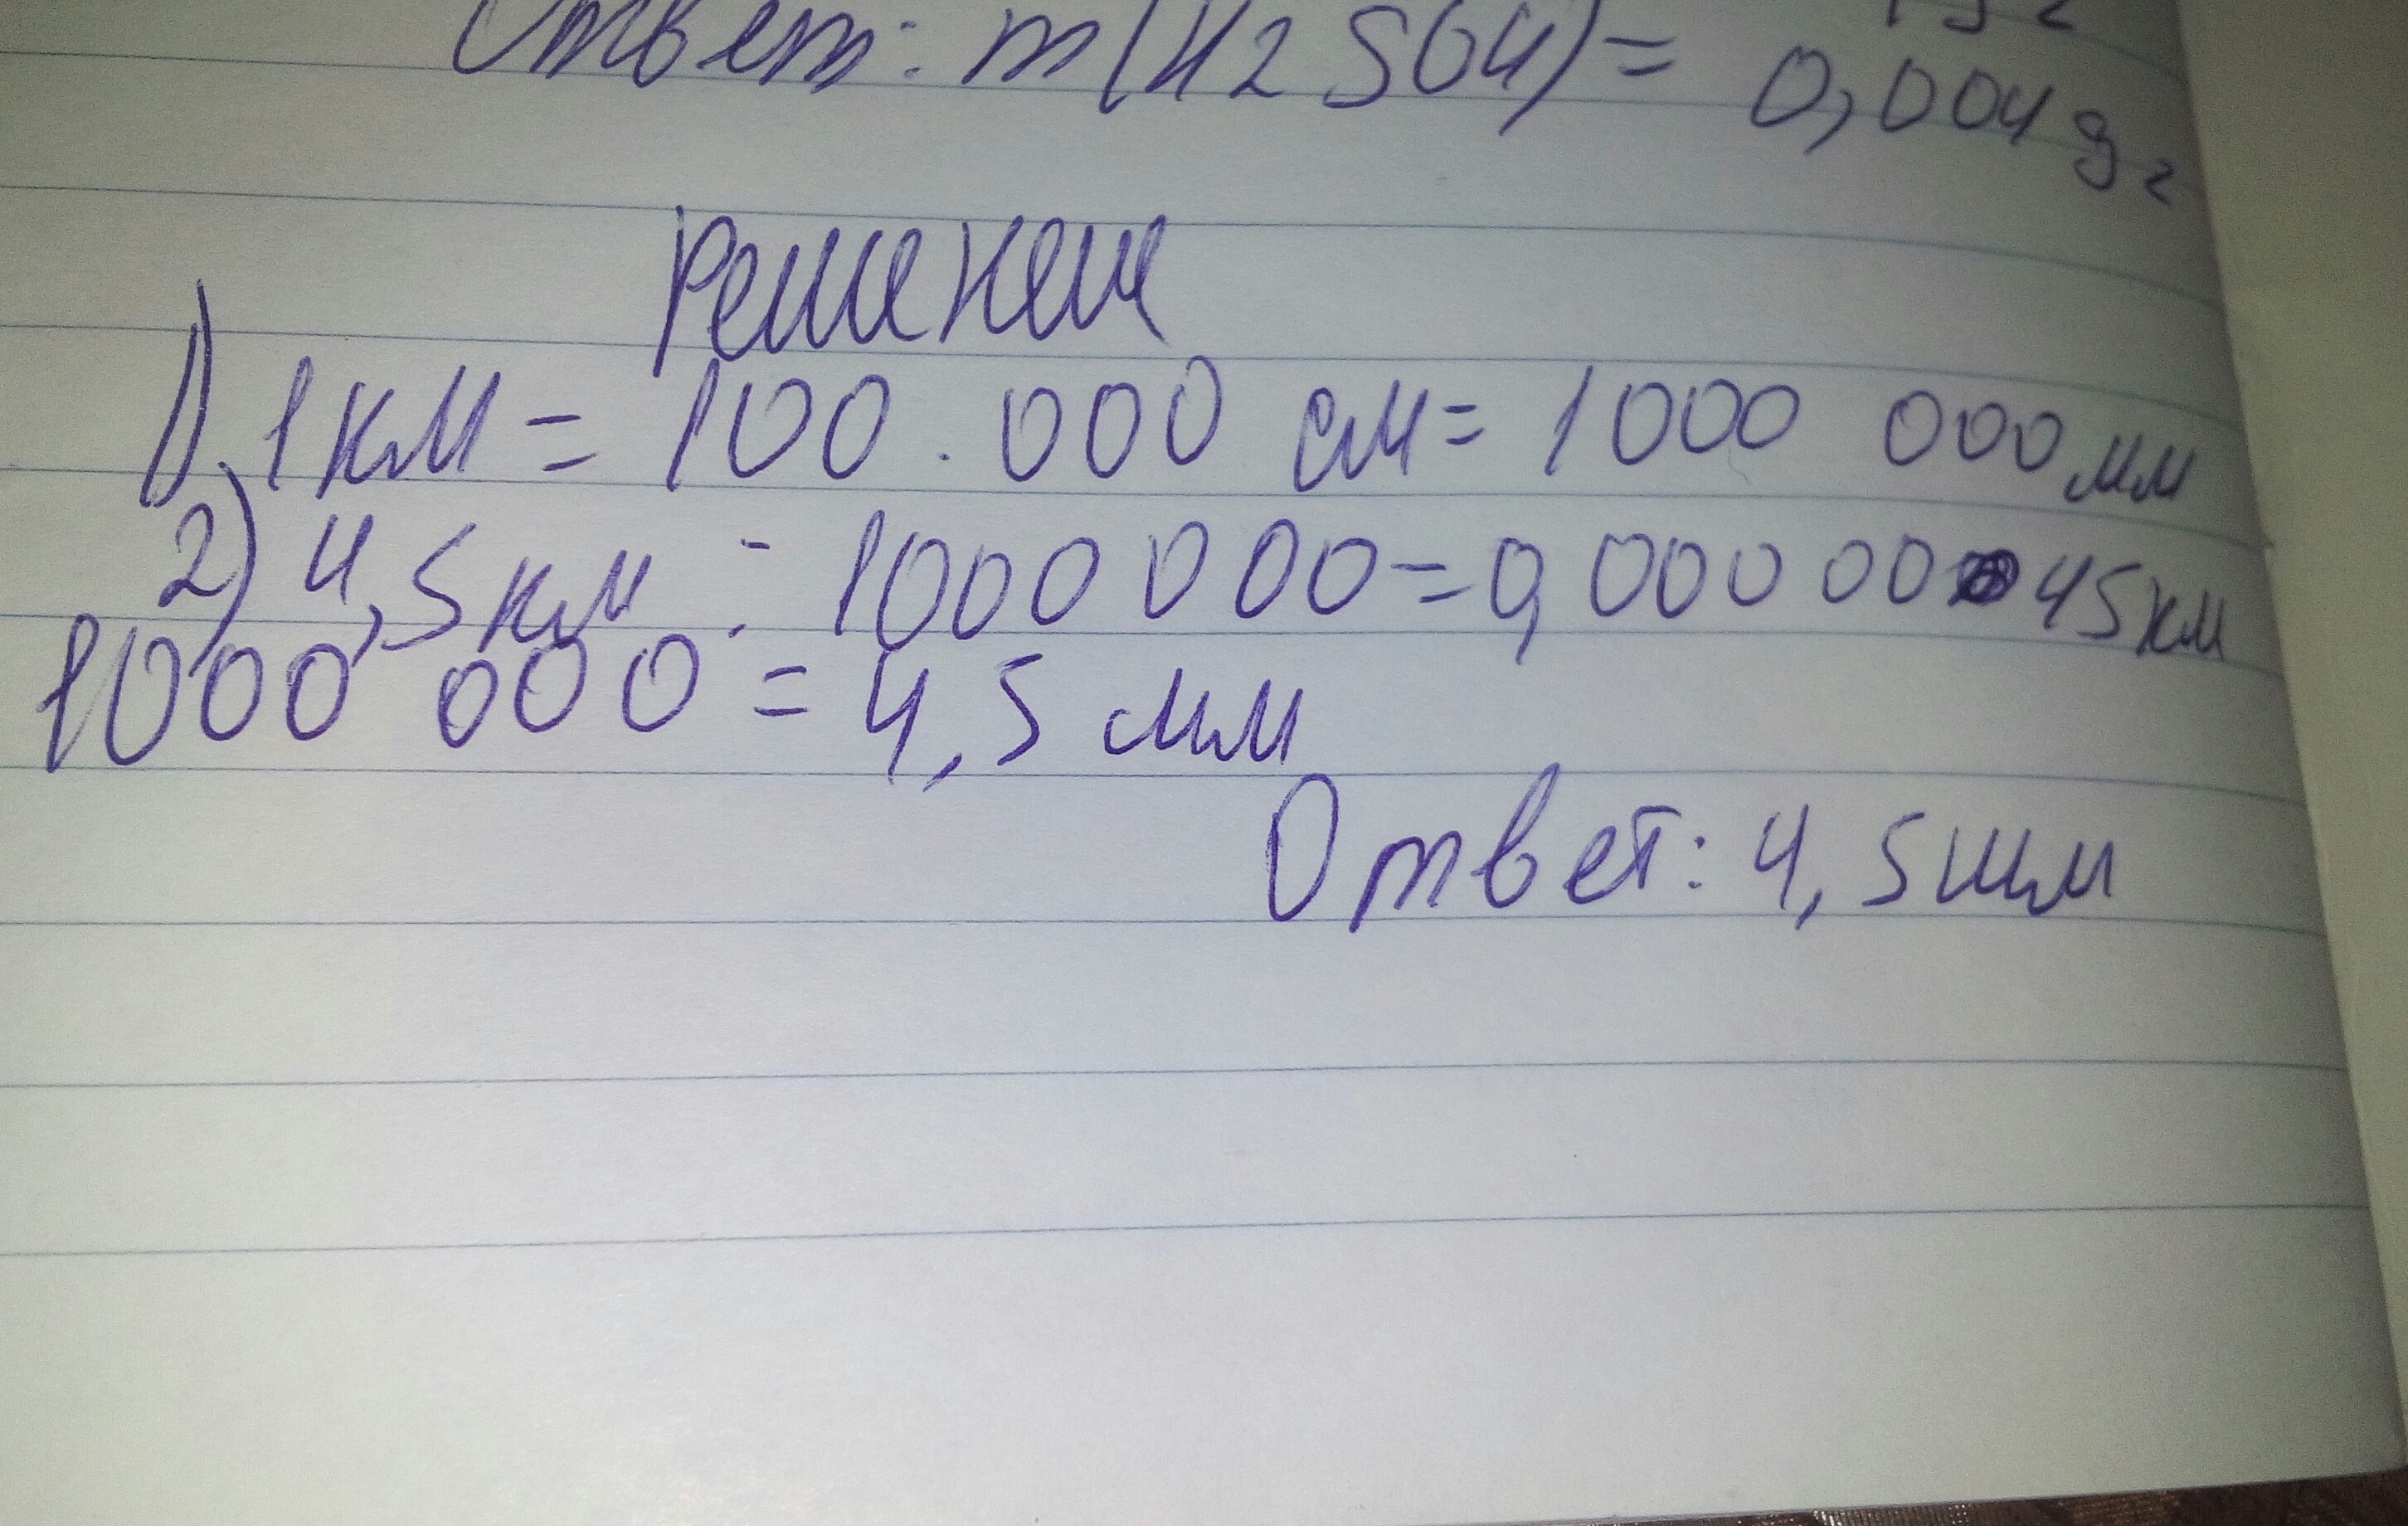 Ответ: m(H2SO4)=
0,0049г
Решение
1) 1км = 100.000 см = 1000 000 мм
2) 4,5км : 1000 000 = 0,00000 45км
1000 000 = 4,5 мм
Ответ: 4,5мм